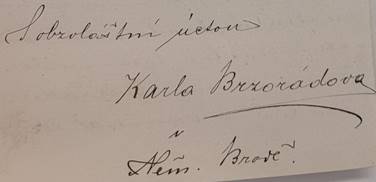 S obzvláštní úctou
Karla Brzorádova
v
Něm. Brodě.